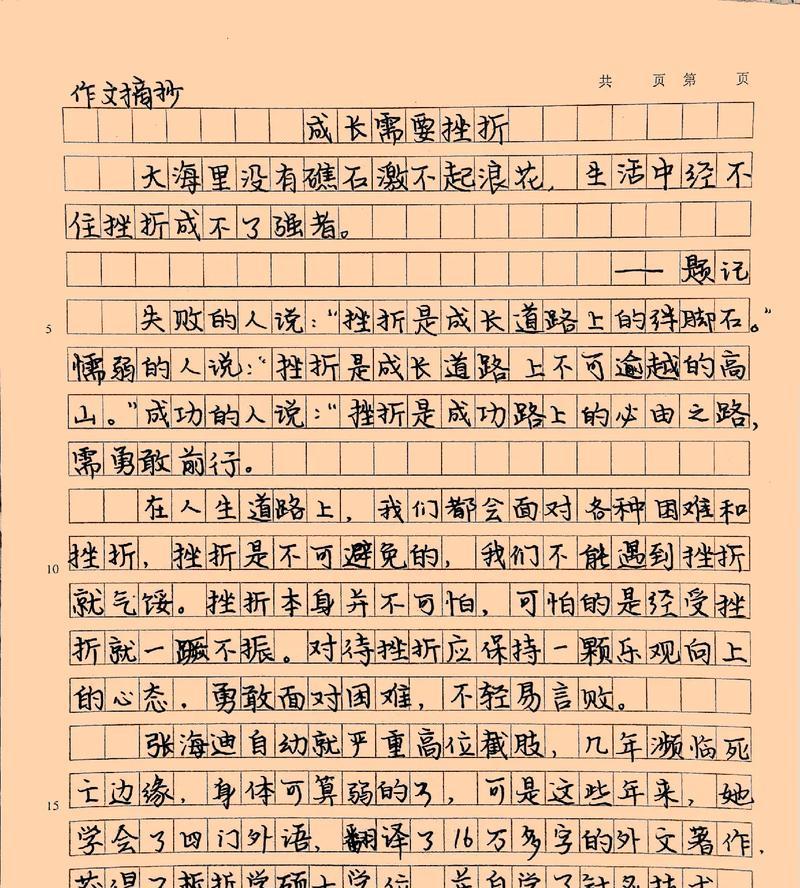 共 页 第 页
作文摘抄
成长需要挫折
大海里没有礁石激不起浪花，生活中经不
住挫折成不了强者。
——题记
5
失败的人说：“挫折是成长道路上的绊脚石。”
懦弱的人说：“挫折是成长道路上不可逾越的高
山。”成功的人说：“挫折是成功路上的必由之路，
需勇敢前行。
在人生道路上，我们都会面对各种困难和
10
挫折，挫折是不可避免的，我们不能遇到挫折
就气馁。挫折本身并不可怕，可怕的是经受挫
折就一蹶不振。对待挫折应保持一颗乐观向上
的心态．勇敢面对困难，不轻易言败。
张海迪自动就严重高位截肢，几年濒临死
15
亡边缘，身体可算弱的了，可是这些年来，她
学会了四门外语，翻译了16万多字的外文著作．
获得了哲学硕士学位